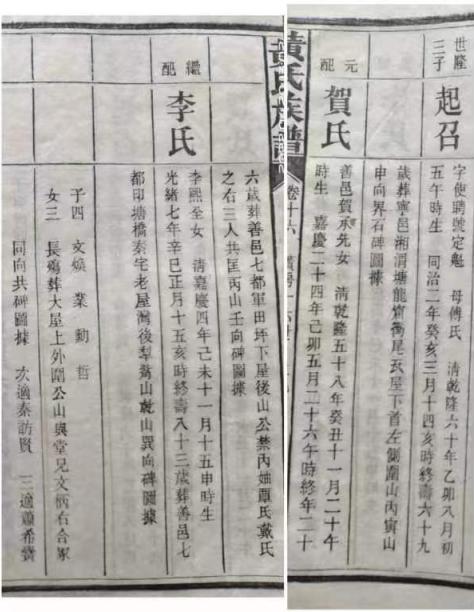 世隆
三子
起召
字使聘號定魁 母傅氏 清乾隆六十年乙卯八月初
五午時生 同治二年癸亥三月十四亥時終壽六十九
歲葬寧邑湘渭塘龍窩衝尾瓦屋下首左側圍山內寅山
申向界石碑圖據
元配
賀氏
善邑賀承先女 清乾隆五十八年癸丑十一月二十午
時生 嘉慶二十四年己卯五月二十六午時終年二十
黃氏族譜
卷十六
六歲葬善邑七都軍田坪下屋後山公禁內妯覃氏戴氏
之右三人共匡丙山壬向碑圖據
繼配
李氏
李熙全女 清嘉慶四年己未十一月十五申時生
光緒七年辛巳正月十五亥時終壽八十三歲葬善邑七
都印塘橋秦宅老屋灣後犁山乾山巽向碑圖據
子四 文煥 業 勳 哲
女三 長殤葬大屋上外圍公山與堂兄文炳右合冢
同向共碑圖據 次適秦訪賢 三適蕭希